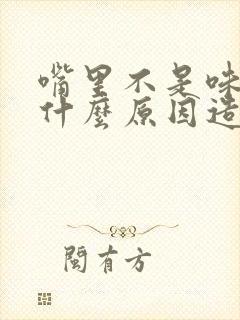 嘴里不是味
什麼原因造
閩有方